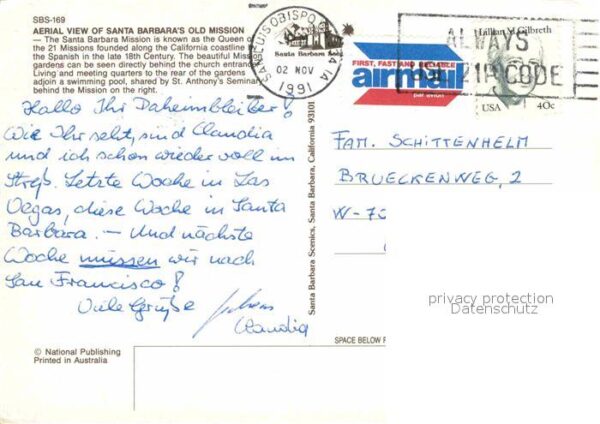 SBS-169
AERIAL VIEW OF SANTA BARBARA'S OLD MISSION
— The Santa Barbara Mission is known as the Queen of
the 21 Missions founded along the California coastline
the Spanish in the late 18th Century. The beautiful Miss
gardens can be seen directly behind the church entran
Living and meeting quarters to the rear of the gardens
adjoin a swimming pool, shared by St. Anthony's Semina
behind the Mission on the right.
Hallo Ihr Daheimbleiber!
Wie Ihr seht, sind Claudia
und ich schon wieder voll im
Streß. Letzte Woche in Las
Vegas, diese Woche in Santa
Barbara. — Und nächste
Woche müssen wir nach
San Francisco!
Viele Grüße
Claudia
© National Publishing
Printed in Australia
Santa Barbara Scenics, Santa Barbara, California 93101
SAN LUIS OBISPO CA
Santa Barbara
02 NOV
1991
FIRST, FAST AND RELIABLE
airmail
par avion
ALWAYS
USE ZIP CODE
Lillian M. Gilbreth
USA 40c
FAM. SCHITTENHELM
BRUECKENWEG, 2
W-7
privacy protection
Datenschutz
SPACE BELOW